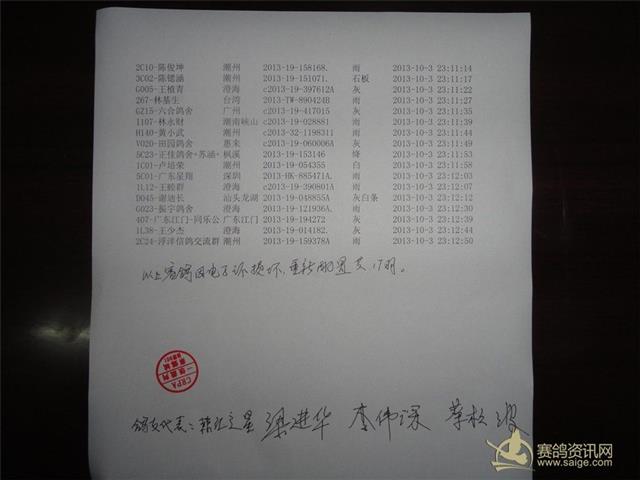 2C10-陈俊坤 潮州 2013-19-158168. 雨 2013-10-3 23:11:14
3C02-陈锶涵 潮州 2013-19-151071. 石板 2013-10-3 23:11:17
G005-王植青 澄海 c2013-19-397612A 灰 2013-10-3 23:11:22
267-林基生 台湾 2013-TW-890424B 雨 2013-10-3 23:11:27
GZ15-六合鸽舍 广州 c2013-19-417015 灰 2013-10-3 23:11:35
1107-林永财 潮南峡山 c2013-19-028881 雨 2013-10-3 23:11:39
H140-黄小武 潮州 c2013-32-1198311 雨 2013-10-3 23:11:44
V020-田园鸽舍 惠来 c2013-19-060006A 灰 2013-10-3 23:11:49
5C23-正佳鸽舍+苏涵+ 枫溪 2013-19-153146 绛 2013-10-3 23:11:53
1C01-卢培荣 潮州 2013-19-054355 白 2013-10-3 23:11:58
5C01-广东星翔 深圳 2013-HK-885471A. 雨 2013-10-3 23:12:03
1L12-王睦群 澄海 c2013-19-390801A 雨 2013-10-3 23:12:07
D045-谢迪长 汕头龙湖 2013-19-048855A 灰白条 2013-10-3 23:12:09
G023-振宇鸽舍 澄海 2013-19-121936A. 雨 2013-10-3 23:12:30
407-广东江门-同乐公 广东江门 2013-19-194272 灰 2013-10-3 23:12:39
1L38-王少杰 澄海 2013-19-014182. 灰 2013-10-3 23:12:44
2C24-浮洋信鸽交流群 潮州 2013-19-159378A 雨 2013-10-3 23:12:50
以上赛鸽因电子环损坏,重新配置共17羽。
CRPA
鸽友代表:韩江之星 梁进华 李伟深
赛鸽资讯网
www.saige.com